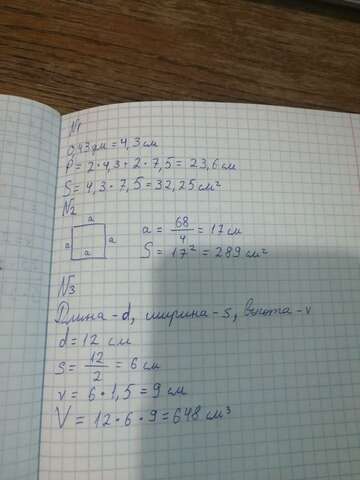 N1
0,43 дм = 4,3 см
P = 2·4,3 + 2·7,5 = 23,6 см
S = 4,3·7,5 = 32,25 см²
N2
a
a a
a
a = 68/4 = 17 см
S = 17² = 289 см²
N3
Длина - d, ширина - s, высота - v
d = 12 см
s = 12/2 = 6 см
v = 6·1,5 = 9 см
V = 12·6·9 = 648 см³